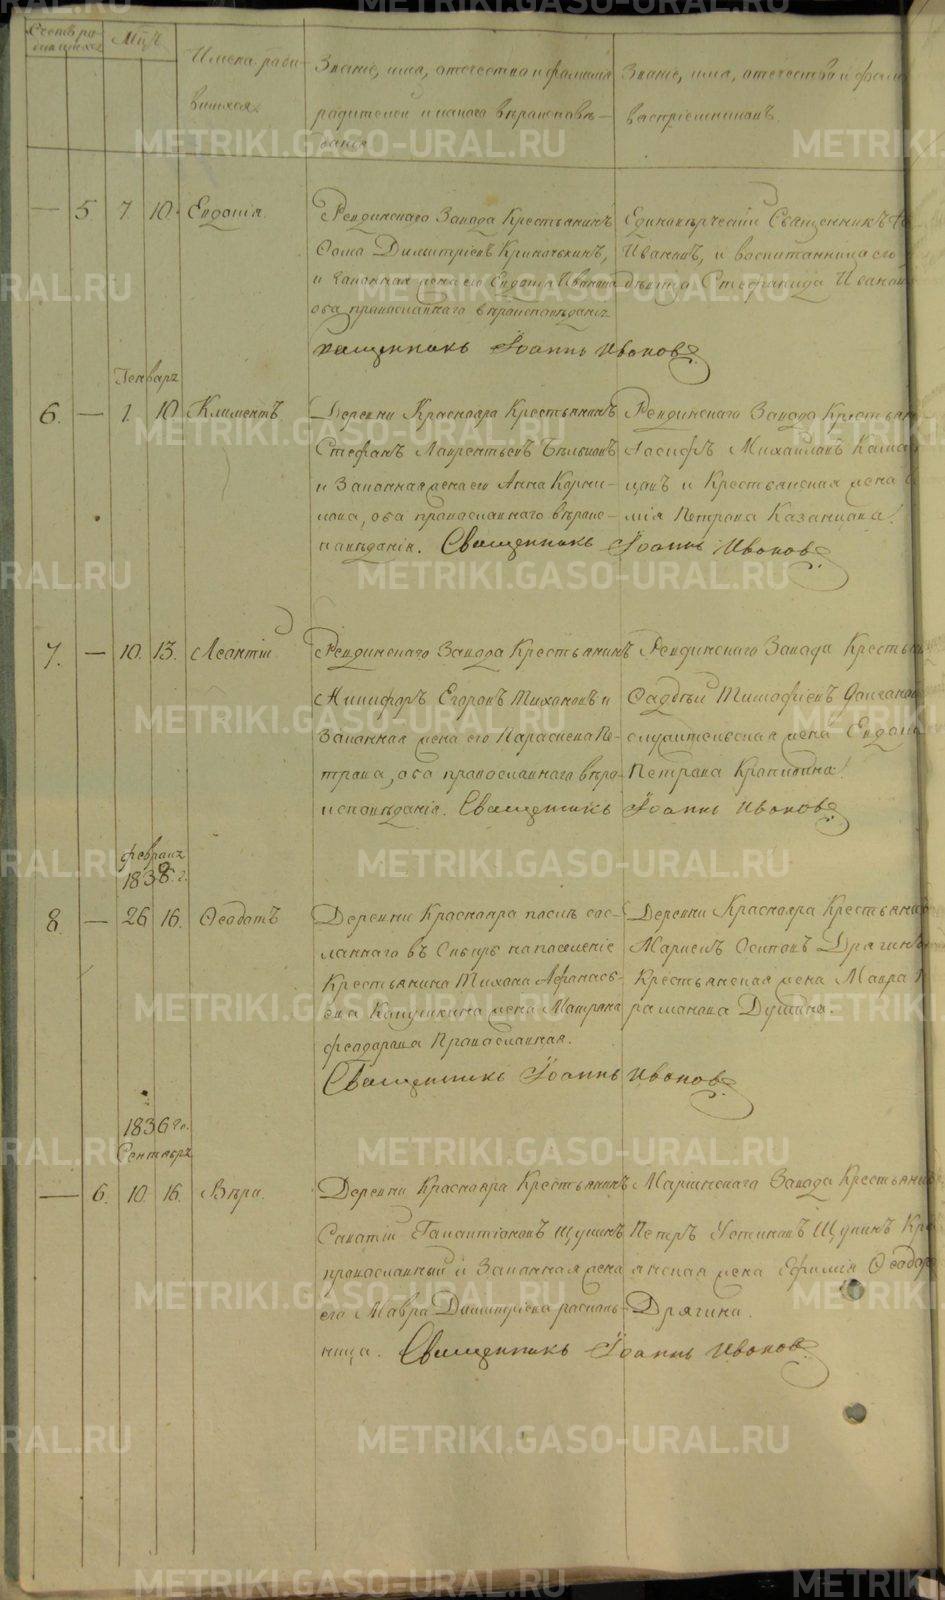 METRIKI.GASO-URAL.RU
Счетъ ра-
дившихся
Мцъ
Имена ради-
вшихся
Званіе, имя, отечество и фамилія
родителей и какого вѣроисповѣ-
данія
Званіе, имя, отечество и фами
воспріемниковъ.
— 5 7. 10. Евдокія.
Ревдинскаго Завода Крестьянинъ
Фома Димитріевъ Криночкинъ,
и Законная жена его Евдокія Иванова
оба православнаго вѣроисповѣданія
Священникъ Іоаннъ Ивановъ
Единовѣрческій Священникъ
Ивановъ, и воспитанница его
дѣвица Стефанида Иванов
Генварь
6. — 1. 10 Климентъ
Деревни Краснояра Крестьянинъ
Стефанъ Лаврентьевъ
и Законная жена его Анна Корни-
лова, оба православнаго вѣроис-
повѣданія. Священникъ Іоаннъ Ивановъ
Ревдинскаго Завода Крестьян
Іосифъ Михайловъ Каза
цовъ и Крестьянская жена
мія Петрова Казанцова.
7. — 10. 13. Леонтій
Ревдинскаго Завода Крестьянинъ
Никифоръ Егоровъ Тихоновъ и
Законная жена его Параскева Пе-
трова, оба православнаго вѣро-
исповѣданія. Священникъ Іоаннъ Ивановъ
Ревдинскаго Завода Крестьян
Фадѣй Тимофѣевъ
служительская жена Евдокі
Петрова
февраль
1838 г.
8. — 26 16. Феодотъ
Деревни Краснояра послѣ сос-
ланнаго въ Сибирь на поселеніе
Крестьянина Тихона Афанась-
ева жена Матрена
феодорова Православная.
Священникъ Іоаннъ Ивановъ
Деревни Краснояра Крестьянин
Осиповъ Дрягинъ
Крестьянская жена Мавра
рамонова
1836 го.
Сентябрь
— 6. 10. 16. Вѣра.
Деревни Краснояра Крестьянинъ
Саватій Галактіоновъ Щукинъ
православный и Законная жена
его Мавра Димитріева расколь-
ница. Священникъ Іоаннъ Ивановъ
Маріинскаго Завода Крестьянин
Петръ Устиновъ Щукинъ Кре
янская жена Ефимія Феодор
Дрягина.